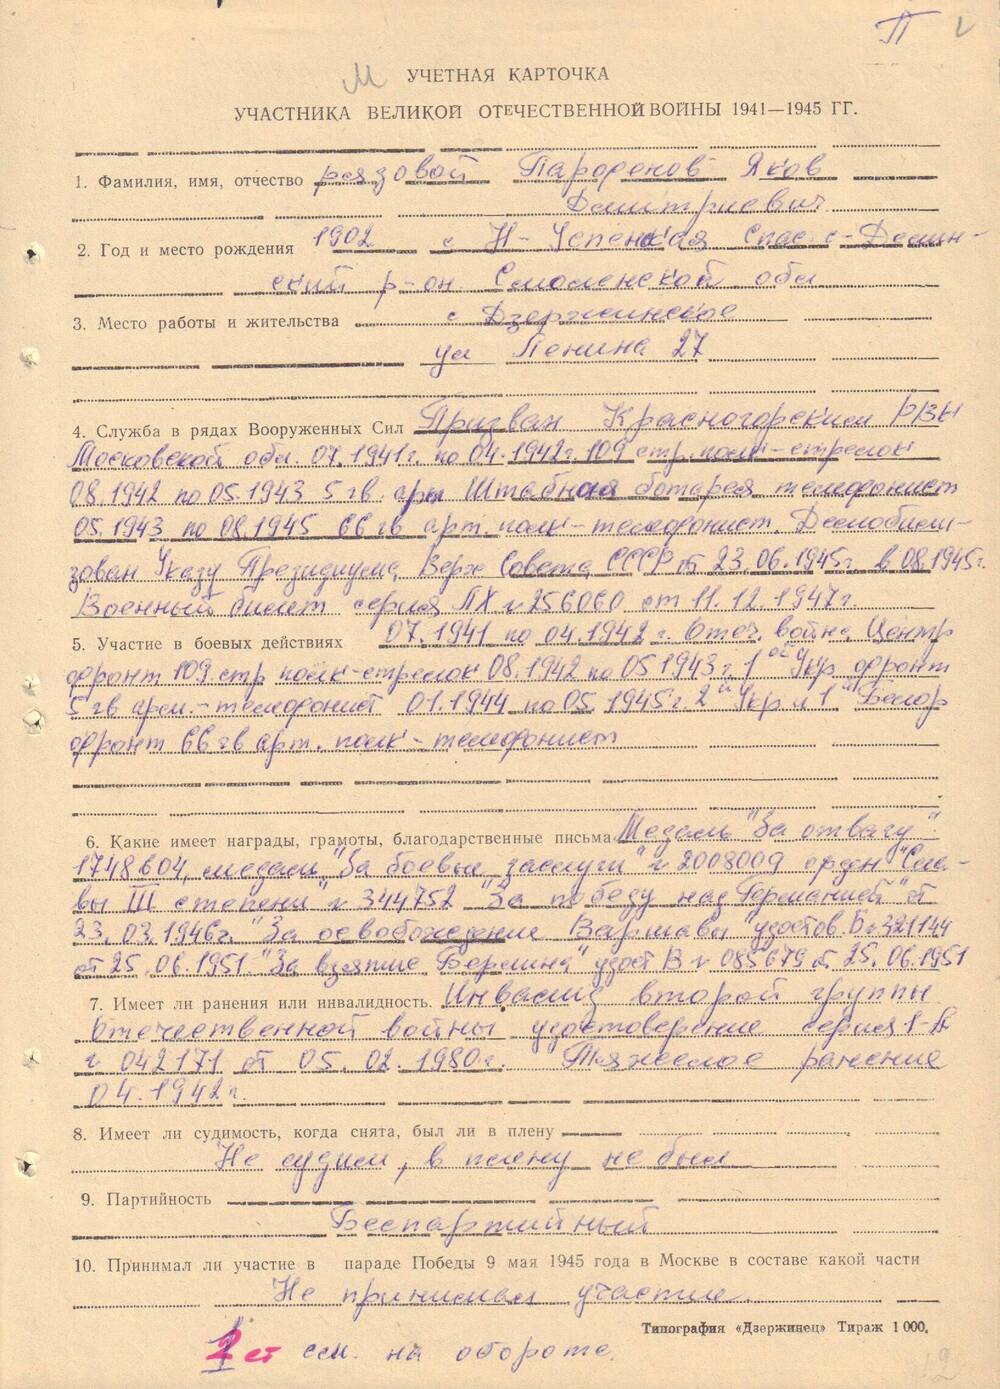 П
М УЧЕТНАЯ КАРТОЧКА
УЧАСТНИКА ВЕЛИКОЙ ОТЕЧЕСТВЕННОЙ ВОЙНЫ 1941—1945 ГГ.
1. Фамилия, имя, отчество рядовой Пародонов Яков
Дмитриевич
2. Год и место рождения 1902 с Н-Успенская Спас с-Демин-
ский р-он. Смоленской обл
3. Место работы и жительства с Дзержинское
ул Ленина 27
4. Служба в рядах Вооруженных Сил Призван Красногорским РВК
Московской обл. 07.1941г. по 04.1942г. 109 стр. полк-стрелок
08.1942 по 05.1943 5 гв. арм Штабная батарея телефонист
05.1943 по 08.1945 66 гв арт. полк-телефонист. Демобили-
зован Указу Президиума Верх Совета СССР от 23.06.1945г. в 08.1945г.
Военный билет серия ЛХ № 256060 от 11.12.1947г.
5. Участие в боевых действиях 07.1941 по 04.1942г. Отеч. война Центр
фронт 109 стр полк-стрелок 08.1942 по 05.1943г. 1ой Укр. фронт
5 гв арм.-телефонист 01.1944 по 05.1945г. 2й Укр и 1й Белор
фронт 66 гв арт. полк-телефонист
6. Какие имеет награды, грамоты, благодарственные письма Медаль "За отвагу"
1748604, медаль "За боевые заслуги" № 2008009 орден "Сла-
вы III степени" № 344752 "За победу над Германией" от
23.03.1946г. "За освобождение Варшавы" удостов. Б № 321144
от 25.06.1951. "За взятие Берлина" удост В № 085679 от 25.06.1951
7. Имеет ли ранения или инвалидность. Инвалид второй группы
Отечественной войны удостоверение серия
№ 042171 от 05.02.1980г. Тяжелое ранение
04.1942г.
8. Имеет ли судимость, когда снята, был ли в плену
Не судим, в плену не был
9. Партийность
Беспартийный
10. Принимал ли участие в параде Победы 9 мая 1945 года в Москве в составе какой части
Не принимал участие.
Типография «Дзержинец» Тираж 1 000.
ст см. на обороте.
2